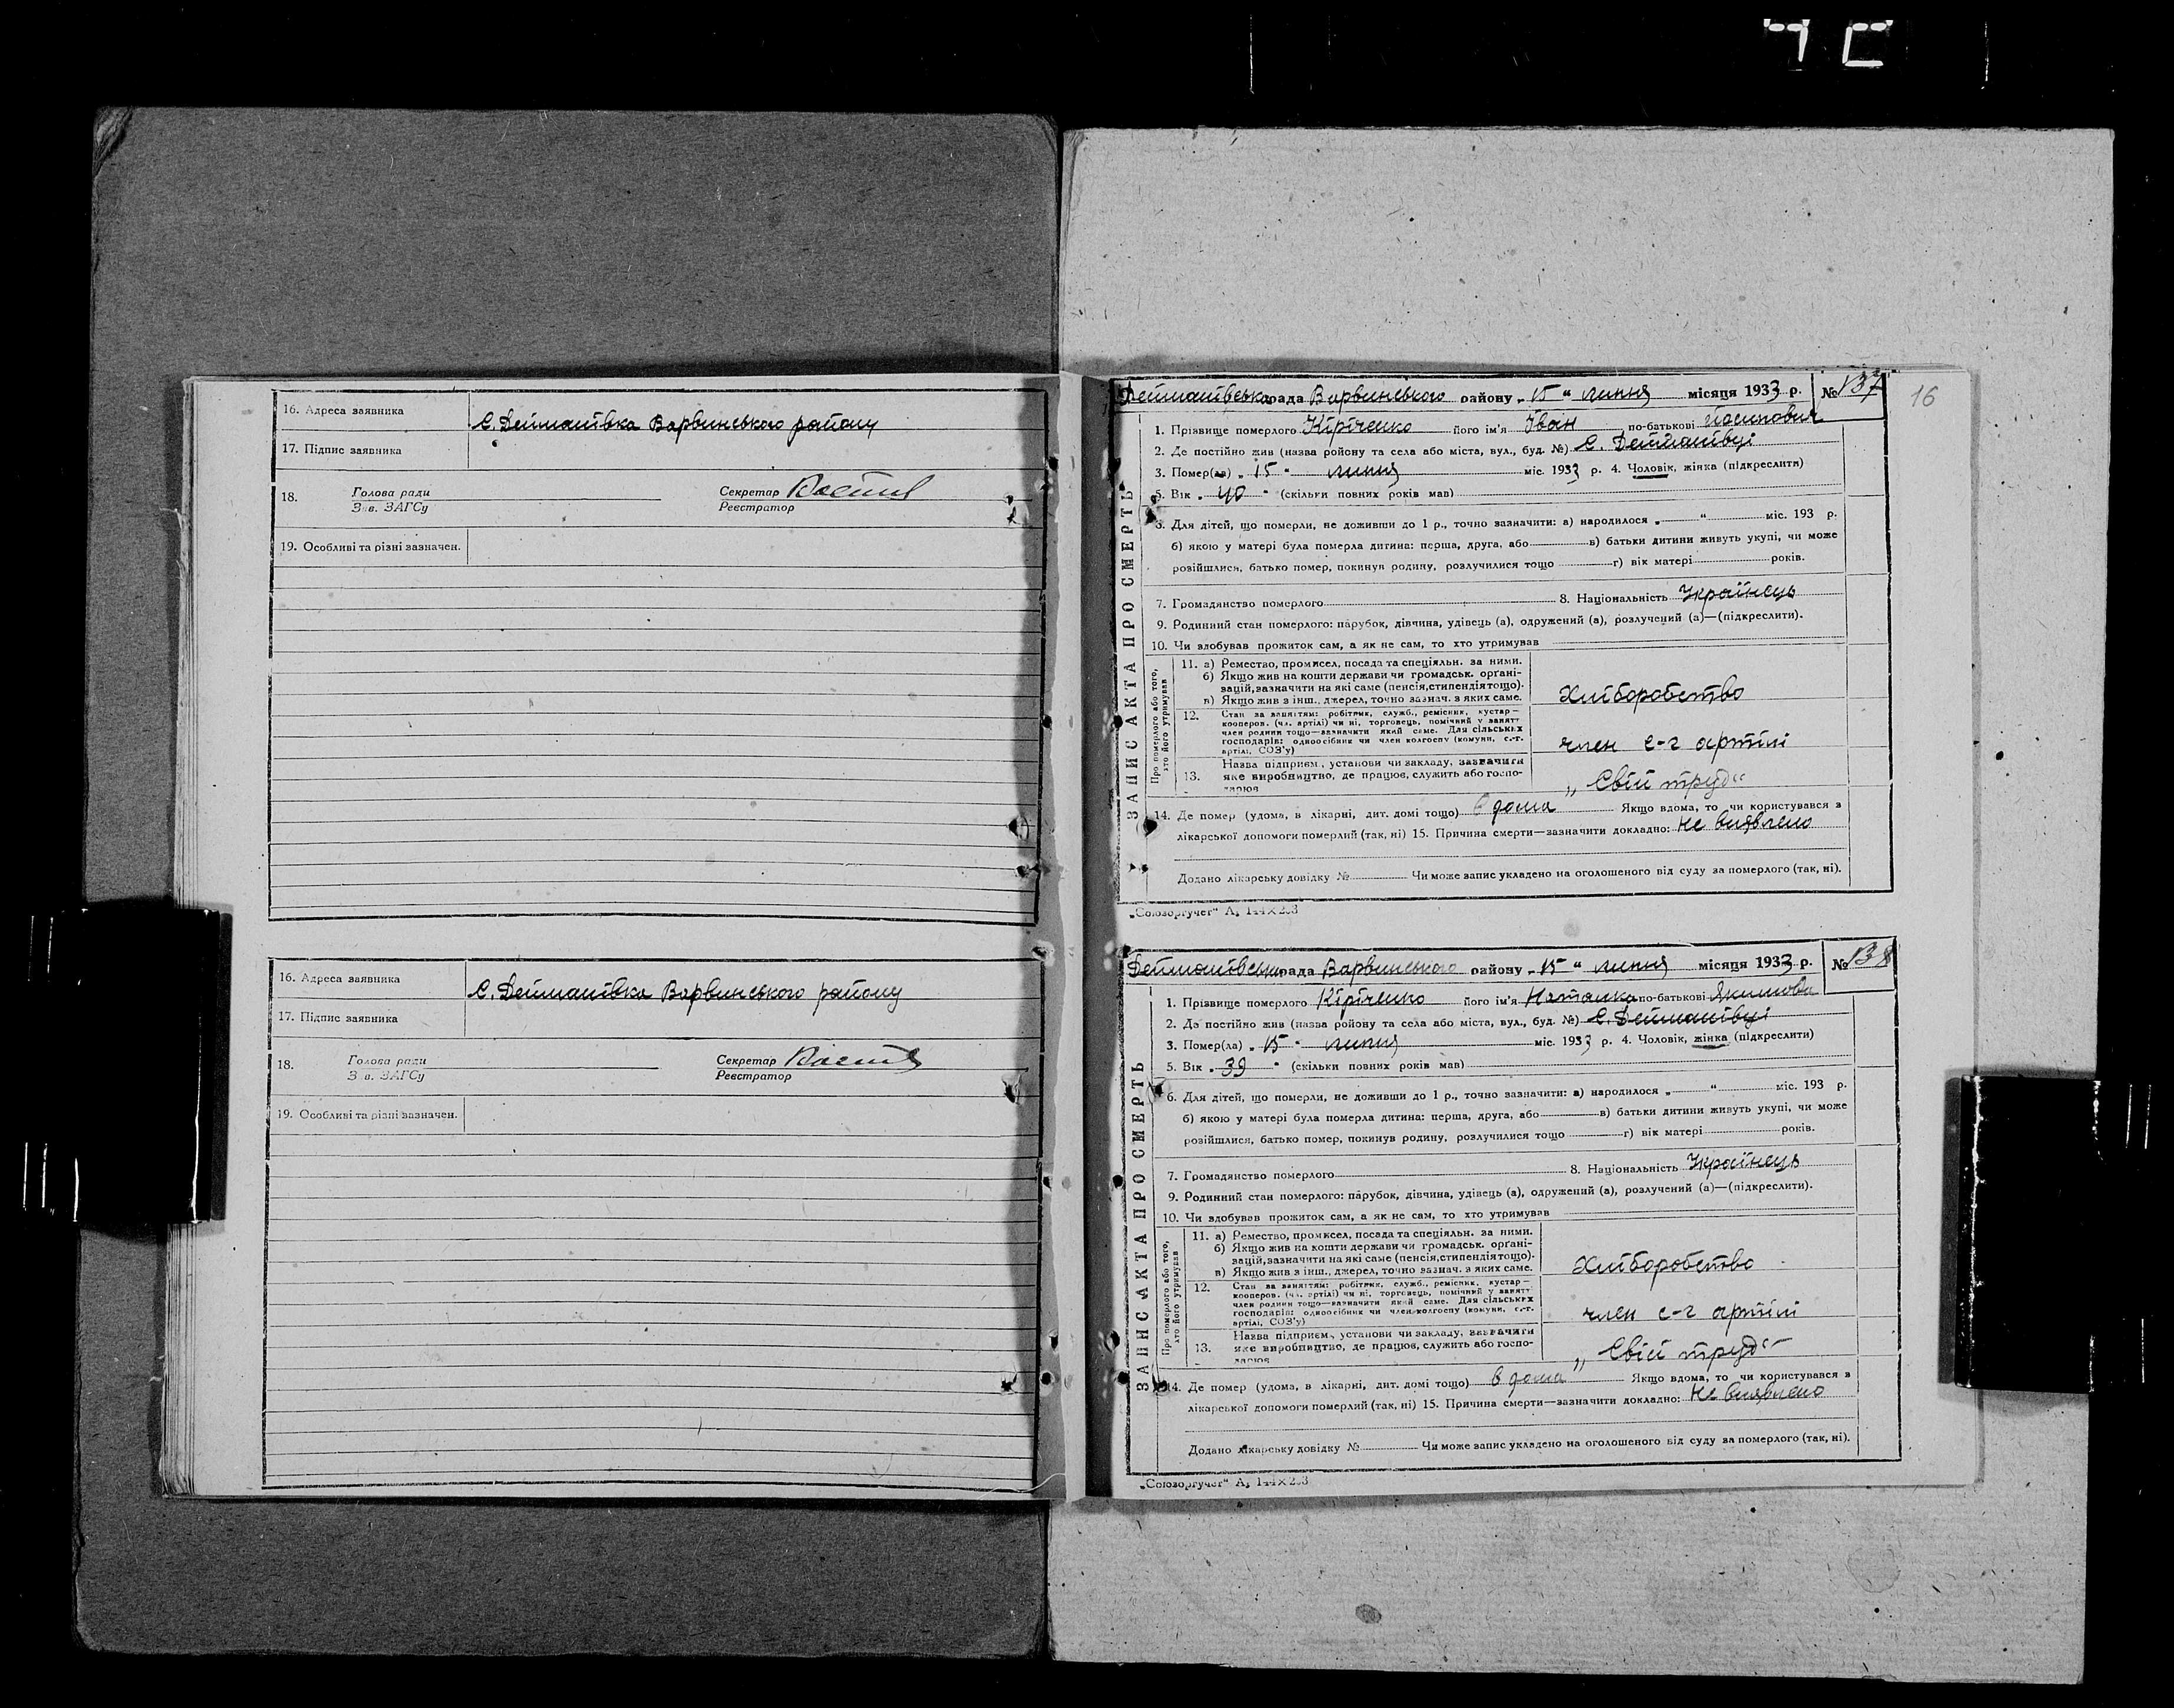 16. Адреса заявника
с. Дейманівка Варвинського району
17. Підпис заявника
18. Голова ради
Зав. ЗАГСу
Секретар
Реєстратор
19. Особливі та різні зазначен.
16. Адреса заявника
с. Дейманівка Варвинського району
17. Підпис заявника
18. Голова ради
Зав. ЗАГСу
Секретар
Реєстратор
19. Особливі та різні зазначен.
16
ЗАПИС АКТА ПРО СМЕРТЬ
Дейманівська рада Варвинського району „15“ липня місяця 1933 р. № 137
1. Прізвище померлого Кіріченко його ім'я Іван по-батькові
2. Де постійно жив (назва району та села або міста, вул., буд. №) с. Дейманівці
3. Помер(ла) „15“ липня міс. 1933 р. 4. Чоловік, жінка (підкреслити)
5. Вік „40“ (скільки повних років мав)
6. Для дітей, що померли, не доживши до 1 р., точно зазначити: а) народилося „ “ міс. 193 р.
б) якою у матері була померла дитина: перша, друга, або в) батьки дитини живуть укупі, чи може
розійшлися, батько помер, покинув родину, розлучилися тощо г) вік матері років.
7. Громадянство померлого 8. Національність Українець
9. Родинний стан померлого: парубок, дівчина, удівець (а), одружений (а), розлучений (а)—(підкреслити).
10. Чи здобував прожиток сам, а як не сам, то хто утримував
Про померлого або того, хто його утримував
11. а) Ремество, промисел, посада та спеціяльн. за ними.
б) Якщо жив на кошти держави чи громадськ. орґані-
зацій, зазначити на які саме (пенсія, стипендія тощо).
в) Якщо жив з інш. джерел, точно зазнач. з яких саме.
Хліборобство
12. Стан за заняттям: робітник, служб., ремісник, кустар—
кооперов. (чл. артілі) чи ні, торговець, помічний у занятт
член родини тощо—зазначити який саме. Для сільських
господарів: одноосібник чи член колгоспу (комуни, с.-г.
артілі, СОЗ'у)
член с-г артілі
13. Назва підприєм., установи чи закладу, зазначити
яке виробництво, де працює, служить або госпо-
дарює
„Свій труд“
14. Де помер (удома, в лікарні, дит. домі тощо) в дома Якщо вдома, то чи користувався з
лікарської допомоги померлий (так, ні) 15. Причина смерти—зазначити докладно: Не виявлено
Додано лікарську довідку № Чи може запис укладено на оголошеного від суду за померлого (так, ні).
„Союзоргучет“ А₅ 144×203
ЗАПИС АКТА ПРО СМЕРТЬ
Дейманівська рада Варвинського району „15“ липня місяця 1933 р. № 138
1. Прізвище померлого Кіріченко його ім'я Наталка по-батькові Якимова
2. Де постійно жив (назва району та села або міста, вул., буд. №) с. Дейманівці
3. Помер(ла) „15“ липня міс. 1933 р. 4. Чоловік, жінка (підкреслити)
5. Вік „39“ (скільки повних років мав)
6. Для дітей, що померли, не доживши до 1 р., точно зазначити: а) народилося „ “ міс. 193 р.
б) якою у матері була померла дитина: перша, друга, або в) батьки дитини живуть укупі, чи може
розійшлися, батько помер, покинув родину, розлучилися тощо г) вік матері років.
7. Громадянство померлого 8. Національність Українець
9. Родинний стан померлого: парубок, дівчина, удівець (а), одружений (а), розлучений (а)—(підкреслити).
10. Чи здобував прожиток сам, а як не сам, то хто утримував
Про померлого або того, хто його утримував
11. а) Ремество, промисел, посада та спеціяльн. за ними.
б) Якщо жив на кошти держави чи громадськ. орґані-
зацій, зазначити на які саме (пенсія, стипендія тощо).
в) Якщо жив з інш. джерел, точно зазнач. з яких саме.
Хліборобство
12. Стан за заняттям: робітник, служб., ремісник, кустар—
кооперов. (чл. артілі) чи ні, торговець, помічний у занятт
член родини тощо—зазначити який саме. Для сільських
господарів: одноосібник чи член колгоспу (комуни, с.-г.
артілі, СОЗ'у)
член с-г артілі
13. Назва підприєм., установи чи закладу, зазначити
яке виробництво, де працює, служить або госпо-
дарює
„Свій труд“
14. Де помер (удома, в лікарні, дит. домі тощо) в дома Якщо вдома, то чи користувався з
лікарської допомоги померлий (так, ні) 15. Причина смерти—зазначити докладно: Не виявлено
Додано лікарську довідку № Чи може запис укладено на оголошеного від суду за померлого (так, ні).
„Союзоргучет“ А₅ 144×203